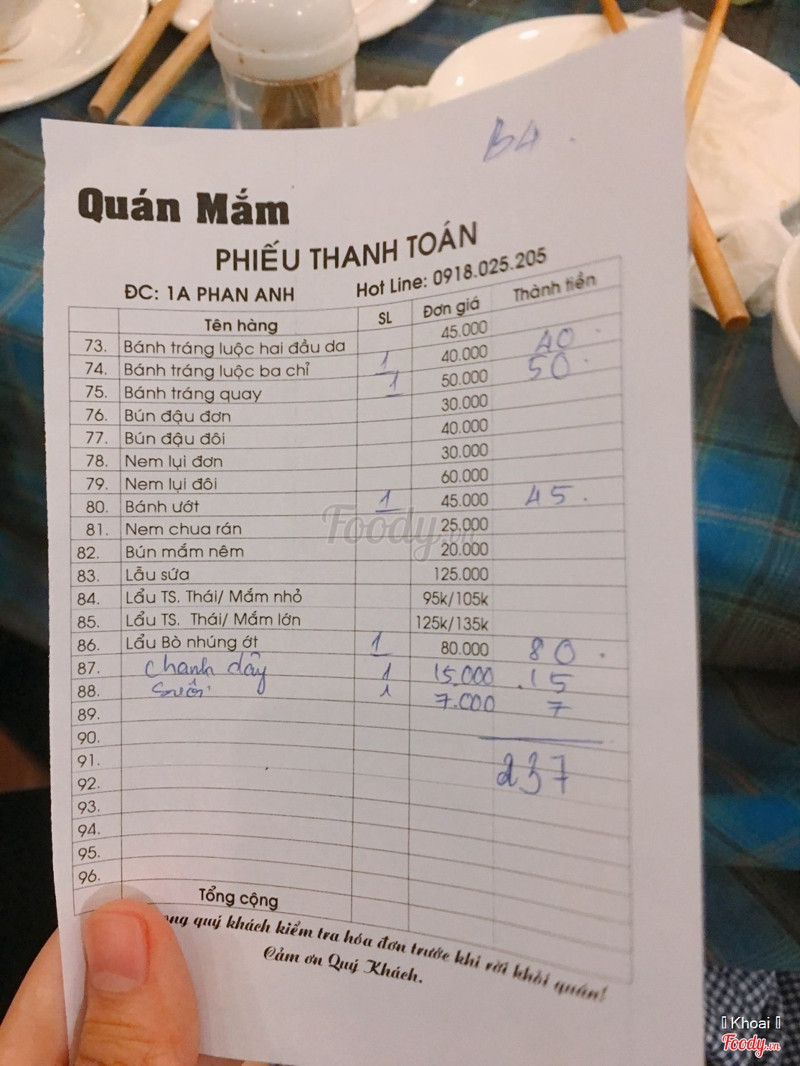 B4.
Quán Mắm
PHIẾU THANH TOÁN
ĐC: 1A PHAN ANH Hot Line: 0918.025.205
Tên hàng SL Đơn giá Thành tiền
73. Bánh tráng luộc hai đầu da 45.000
74. Bánh tráng luộc ba chỉ 1 40.000 40
75. Bánh tráng quay 1 50.000 50
76. Bún đậu đơn 30.000
77. Bún đậu đôi 40.000
78. Nem lụi đơn 30.000
79. Nem lụi đôi 60.000
80. Bánh ướt 1 45.000 45
81. Nem chua rán 25.000
82. Bún mắm nêm 20.000
83. Lẩu sứa 125.000
84. Lẩu TS. Thái/ Mắm nhỏ 95k/105k
85. Lẩu TS. Thái/ Mắm lớn 125k/135k
86. Lẩu Bò nhúng ớt 1 80.000 80
87. Chanh dây 1 15.000 15
88. Suối 1 7.000 7
89.
90.
91. 237
92.
93.
94.
95.
96.
Tổng cộng
quý khách kiểm tra hóa đơn trước khi rời khỏi quán!
Cảm ơn Quý Khách.
Foody.vn
Khoai
Foody.vn